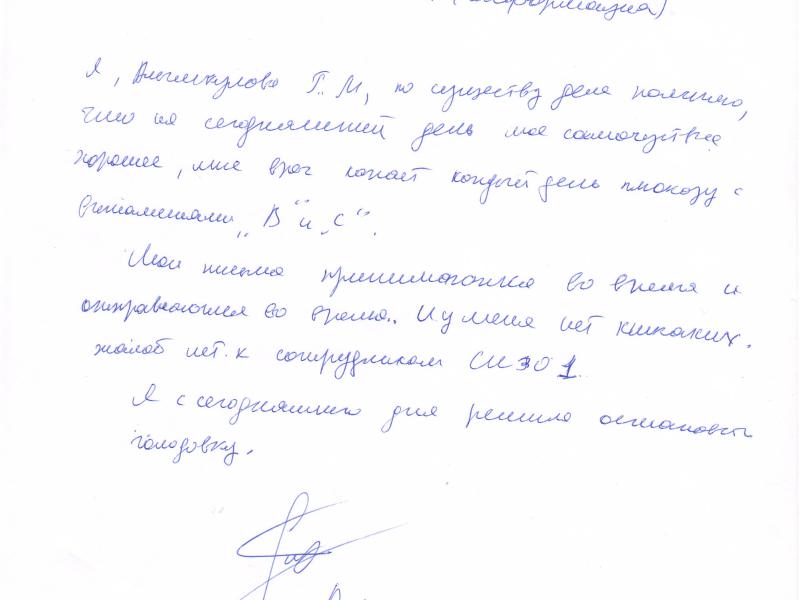 Я, Г. М, по существу дела поясняю,
что на сегодняшний день мое самочувствие
хорошее, мне врач капает каждый день глюкозу с
витаминами „В" и „С".
Мои письма принимаются во время и
отправляются во время.. И у меня нет никаких.
жалоб нет. к сотрудникам СИЗО 1.
Я с сегодняшнего дня решила остановить
голодовку.